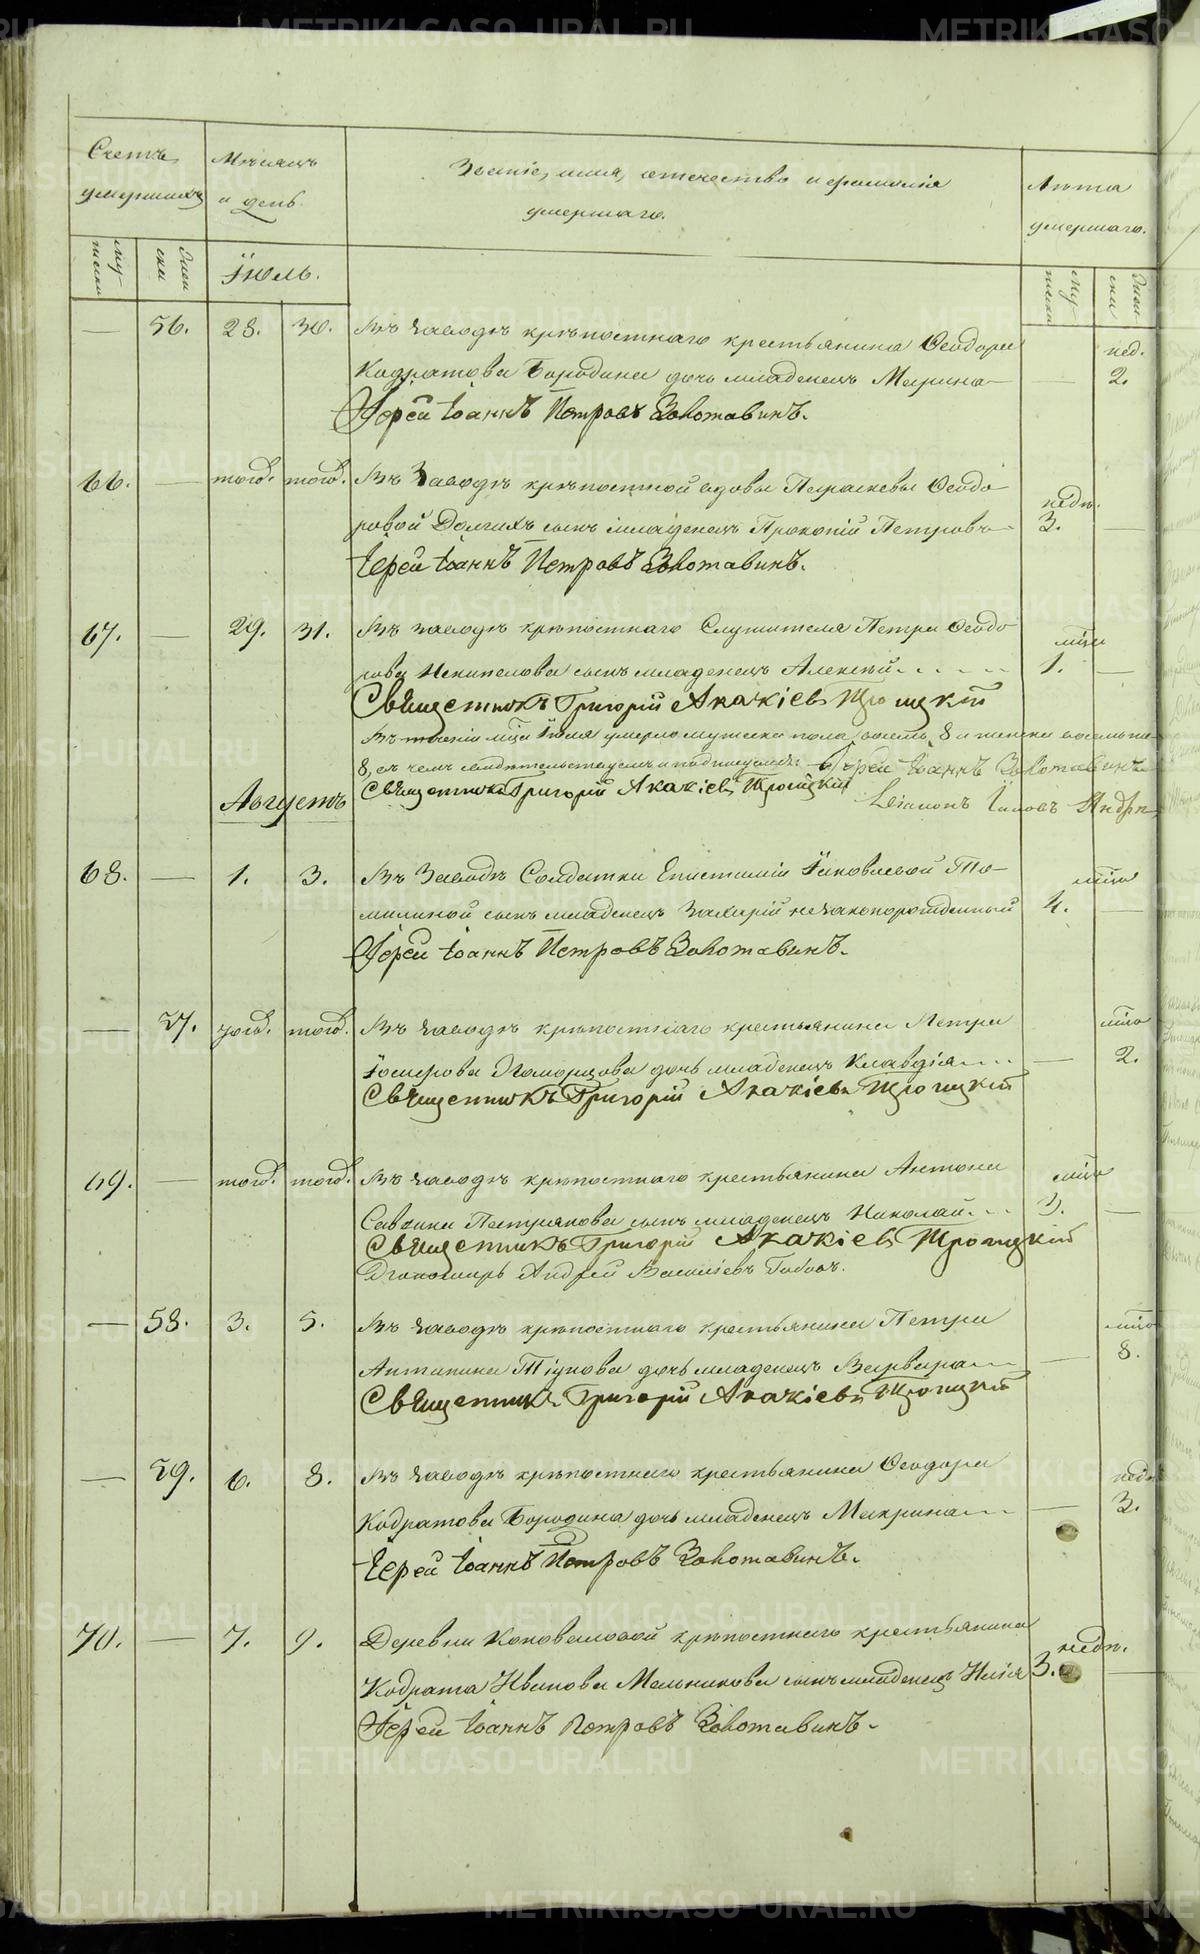 METRIKI.GASO-URAL.RU
Счетъ умершихъ
Мѣсяцъ и день
Званіе, имя, отечество и фамилія
умершаго.
Лѣта умершаго.
мужески
женски
Іюль.
мужески
женски
— 56. 28. 30. Въ Заводѣ крѣпостнаго крестьянина Ѳеодора
нед. 2.
Кодратова Бородина дочь младенецъ Марина —
Іерей Іоаннъ Петровъ Золотавинъ.
66. — тогож. тогож. Въ Заводѣ крѣпостной вдовы Параскевы Ѳеодо
недѣ. 3. —
ровой Долгихъ сынъ младенецъ Прокопій Петровъ
Іерей Іоаннъ Петровъ Золотавинъ.
67. — 29. 31. Въ заводѣ крѣпостнаго Служителя Петра Ѳеодо
мѣся 1. —
рова Некипелова сынъ младенецъ Алексѣй
Священникъ Григорій Акакіевъ Троицкій
Въ теченіи мѣся Іюля умерло мужеска пола восемь, 8 и женска восемь же
8, въ чемъ свидѣтельствуемъ и подписуемъ: Іерей Іоаннъ Золотавинъ
Священникъ Григорій Акакіевъ Троицкій
Августъ
68. — 1. 3. Въ Заводѣ Солдатки Епистиміи Іаковлевой То-
4. —
милиной сынъ младенецъ Захарій незаконорожденный
Іерей Іоаннъ Петровъ Золотавинъ.
— 57. тогож. тогож. Въ Заводѣ крѣпостнаго крестьянина Петра
2.
дочь младенецъ Клавдія
Священникъ Григорій Акакіевъ Троицкій
69. — тогож. тогож. Въ Заводѣ крѣпостнаго крестьянина Антона
3. —
Саввина Петрякова сынъ младенецъ Николай
Священникъ Григорій Акакіевъ Троицкій
Пономарь Андрей Васильевъ
— 58. 3. 5. Въ Заводѣ крѣпостнаго крестьянина Петра
8.
Антипина Тіунова дочь младенецъ Варвара
Священникъ Григорій Акакіевъ Троицкій
— 59. 6. 8. Въ Заводѣ крѣпостнаго крестьянина Ѳеодора
недѣ. 3.
Кодратова Бородина дочь младенецъ Макрина
Іерей Іоаннъ Петровъ Золотавинъ.
70. — 7. 9. Деревни Коноваловой крѣпостнаго крестьянина
недѣ. 3. —
Кодрата Иванова Мельникова сынъ младенецъ Илія
Іерей Іоаннъ Петровъ Золотавинъ.